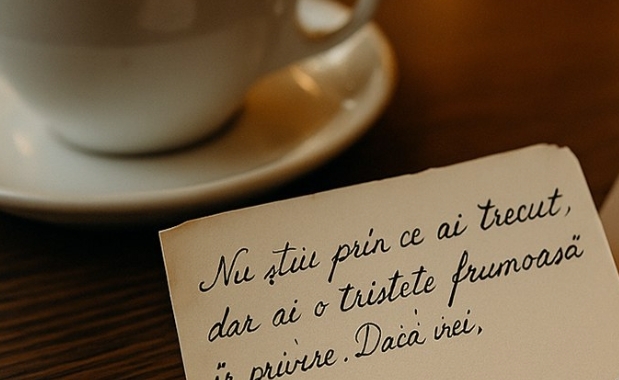 Nu știu prin ce ai trecut,
dar ai o tristete frumoasă
în privire. Dacă vrei,